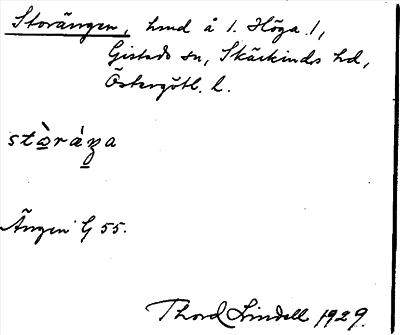 Storängen, hmd å l. Höga l,
Gistads sn, Skärkinds hd,
Östergötl. l.
Ängen G 55.
Thord Lindell 1929.